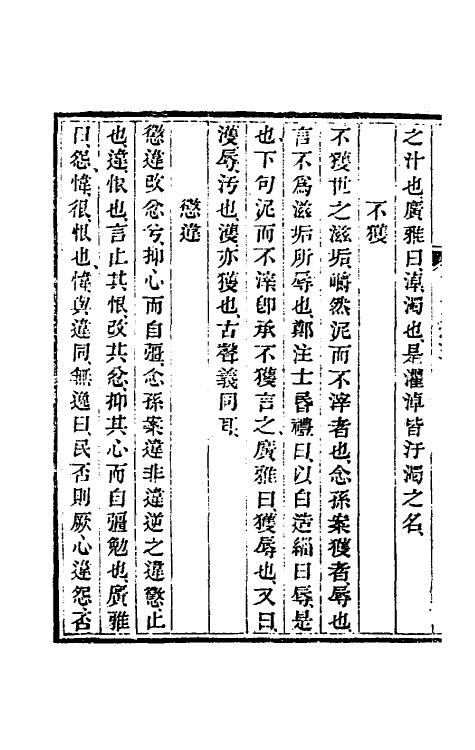 之汁也廣雅曰淖濁也是濯淖皆汙濁之名
不獲
不獲世之滋垢皭然泥而不滓者也念孫案獲者辱也
言不為滋垢所辱也鄭注士昏禮曰以白造緇曰辱是
也下句泥而不滓卽承不獲言之廣雅曰獲辱也又曰
濩辱汚也濩亦獲也古聲義同耳
懲違
懲違改忿兮抑心而自彊念孫案違非違逆之違懲止
也違恨也言止其恨改其忿抑其心而自彊勉也廣雅
曰怨愇很恨也愇與違同無逸曰民否則厥心違怨否